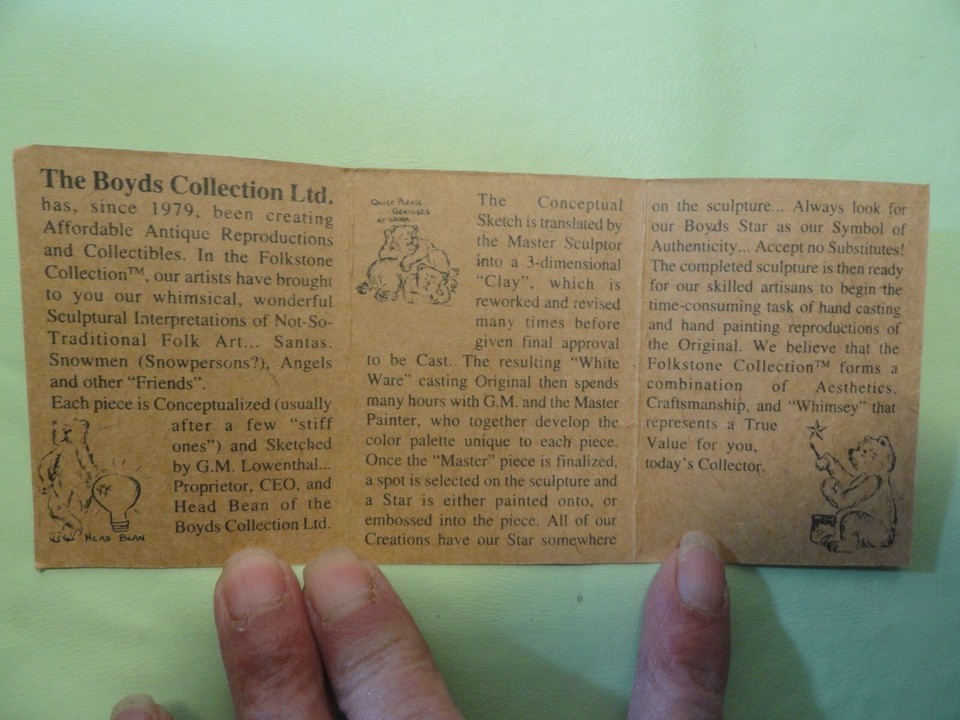 The Boyds Collection Ltd.
has, since 1979, been creating
Affordable Antique Reproductions
and Collectibles. In the Folkstone
Collection™, our artists have brought
to you our whimsical, wonderful
Sculptural Interpretations of Not-So-
Traditional Folk Art... Santas.
Snowmen (Snowpersons?), Angels
and other “Friends”.
Each piece is Conceptualized (usually
after a few “stiff
ones”) and Sketched
by G.M. Lowenthal...
Proprietor, CEO, and
Head Bean of the
Boyds Collection Ltd.
HEAD BEAN
QUIET PLEASE
GENIUSES
AT WORK
The Conceptual
Sketch is translated by
the Master Sculptor
into a 3-dimensional
“Clay”, which is
reworked and revised
many times before
given final approval
to be Cast. The resulting “White
Ware” casting Original then spends
many hours with G.M. and the Master
Painter, who together develop the
color palette unique to each piece.
Once the “Master” piece is finalized,
a spot is selected on the sculpture and
a Star is either painted onto, or
embossed into the piece. All of our
Creations have our Star somewhere
on the sculpture... Always look for
our Boyds Star as our Symbol of
Authenticity... Accept no Substitutes!
The completed sculpture is then ready
for our skilled artisans to begin the
time-consuming task of hand casting
and hand painting reproductions of
the Original. We believe that the
Folkstone Collection™ forms a
combination of Aesthetics,
Craftsmanship, and “Whimsey” that
represents a True
Value for you,
today’s Collector.